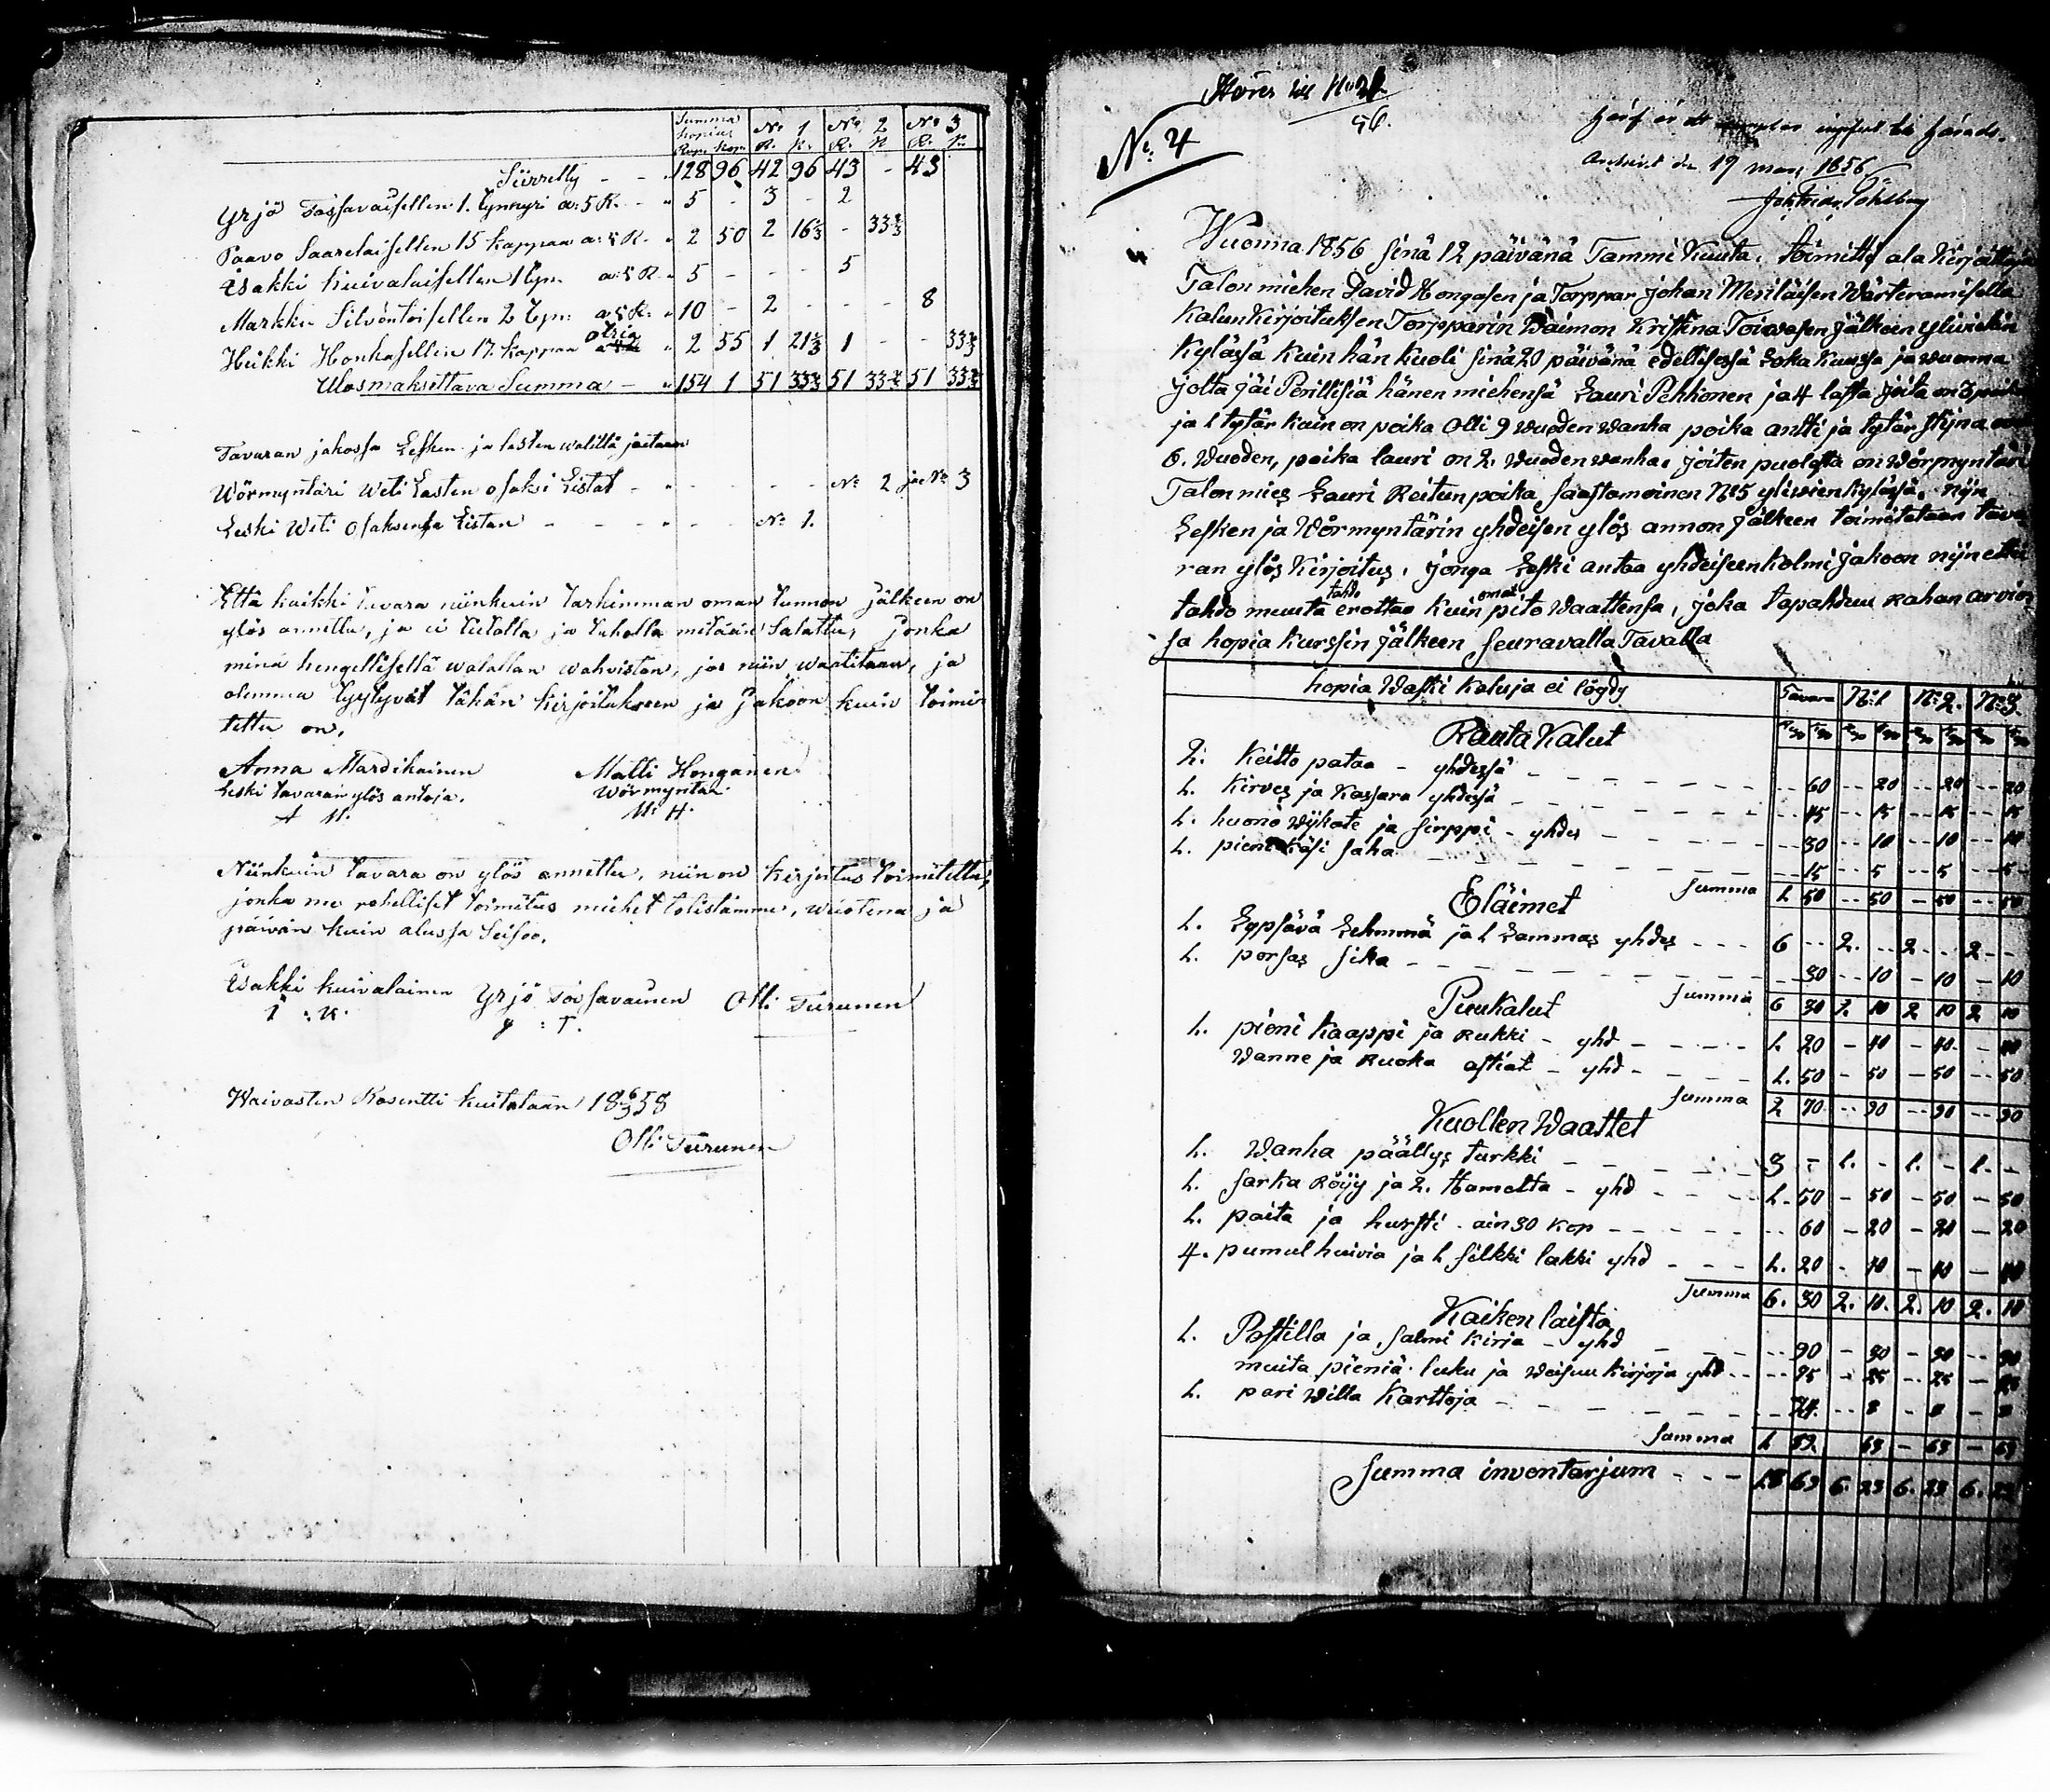 Summa hopias N: 1 N: 2 N: 3
Rup. Kop. R. K. R. K R. K
Siirretty - - " 128 96 42 96 43 - 43
Yrjö Tossavaisellen 1. tynnyri a: 5 R. - " 5 - 3 - 2
Paavo Saarelaisellen 15 kappaa a: 5 R. " 2 50 2 16 2/3 - 33 1/3
Isakki Kuivalaisellen 1 tyn: a: 5 R. " 5 - - - 5
Markku Silvöntoisellen 2 tyn: a: 5 R: " 10 - 2 - - - 8
Heikki Honkasellen 17. kappaa otria " 2 55 1 21 2/3 1 - - 33 1/3
Ulosmaksettava Summa - " 154 1 51 33 2/3 51 33 2/3 51 33 2/3
Tavaran jakossa Lesken ja lasten walillä jaetaan
Wörmyntäri Weti Lasten osaksi Listat - " - - - - - N: 2 ja N: 3
Leski Weti osaksensa Listan - - - - " - - N: 1.
Että kaikki tavara niinkuin tarkimman oman tunnon jälkeen on
ylös annettu, ja ei tietolla ja taholla mitään Salattu, jonka
minä hengellisellä walallan wahvistan, jos niin waatitaan, ja
olemma tyytyvät tähän kirjoitukseen ja jakoon kuin toimi-
tettu on.
Anna Mardikainen Matti Honganen
Leski tavaran ylös antaja. Wörmyntär.
A M. M: H.
Niinkuin tavara on ylös annettu, niin on kirjoitus toimitettu,
jonka me rehelliset toimitus miehet tolistamme, wuotena ja
päivän kuin alussa Seisoo.
Isakki kuivalainen Yrjö Tossavainen Olli Turunen
I : K. Y : T.
Waivasten Rosentti kuitataan 18 6/3 58
Olli Turunen
N:o 4
56.
Archivet den 19 mars 1856
Wuonna 1856 sinä 12 päivänä Tammi Kuuta, toimitti ala Kirjoittaja
Talon miehen David Hongasen ja Torppar Johan Mesiläisen Wärteramisella
Kalun Kirjoituksen Torpparin Waimon Kristina Toivasen Jälkein ylivieskin
Kylässä Kuin hän Kuoli sinä 20 päivänä edellisessä Loka Kuussa ja wuonna
Jolta jäi Perillisiä hänen miehensä Lauri Pehkonen ja 4 lasta Joita on 3 poikaa
ja 1 tytär kuin on poika Olli 9 wuoden wanha poika antti ja tytär stijna
6. Wuoden, poika lauri on 2. Wuoden wanha. joiten puolesta on Wörmyntäri
Talon mies Lauri Reitun poika Saastamoinen N:5 ylivien kylässä. nijn
Lesken ja Wörmyntärin yhdeisen ylös annon jälkeen toimitetaan tava
ran ylös Kirjoitus, jonga Leski antaa yhdeiseen kolmi jakoon nijn että
tahdo
omat
tahdo muuta erottaa kuin pito Waattensa, joka tapahduu Rahan arvios
sa hopia Kurssin jälkeen seuravalla Tavalla
hopia Waski Kaluja ei löydy Tavara N:1 N:2. N:3.
Rauta Kalut
2: Keitto pataa - yhdessä - - - - - - - - 60 -- 20 -- 20 -- 20
1. Kirves ja Kassara yhdessä - - - - - - -- 45 -- 15 -- 15 -- 15
1. huono Wijkate ja Sirppi - yhdes - - - - -- 30 -- 10 -- 10 -- 10
1. pieni Käsi saha - - - - - - - - -- 15 -- 5 -- 5 -- 5
Summa 1 50 -- 50 -- 50 -- 50
Eläimet
1. Lypsävä Lehmmä ja 1 Lammas yhdes - - - 6 -- 2. -- 2 -- 2 --
1. porsas sika - - - - - - - - - -- 30 -- 10 -- 10 -- 10
Summa 6 30 2. 10 2 10 2 10
Puukalut
1. pieni Kaappi ja Rukki - yhd - - - - 1. 20 - 40 - 40 - 40
Wanne ja Ruoka astiat - yhd - - - - 1. 50 - 50 - 50 - 50
Summa 2 70 -- 90 -- 90 -- 90
Kuollen Waattet
1. Wanha päällys turkki - - - - - 3 - 1. - 1. - 1. -
1. Sarka Röijy ja 2. Hametta - yhd - - - 1. 50 - 50 - 50 - 50
1. paita ja hursti - ain 30 kop - - - - - -- 60 - 20 - 20 - 20
4. pumul huivia ja 1 silkki lakki yhd - - - 1. 20 - 40 - 40 - 40
Summa 6. 30 2. 10. 2. 10 2. 10
Kaiken laista
1. Postilla ja salmi Kirja - yhd - - - 90 - 30 - 30 - 30
muita pieniä luku ja Weisuu Kirjoja yhd - - - 75 - 25 - 25 - 25
1. pari Willa Karttoja - - - - - - - 24. -- 8 - 8 - 8
Summa 1 89 63 - 63 - 63
Summa inventarjum - - - 18 69 6. 23 6. 23 6. 23